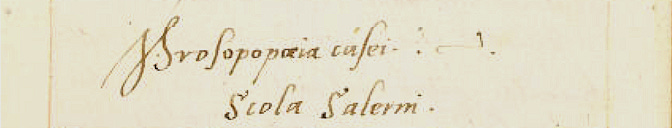 Prosopopœia cãsei.
Scola Salerni.